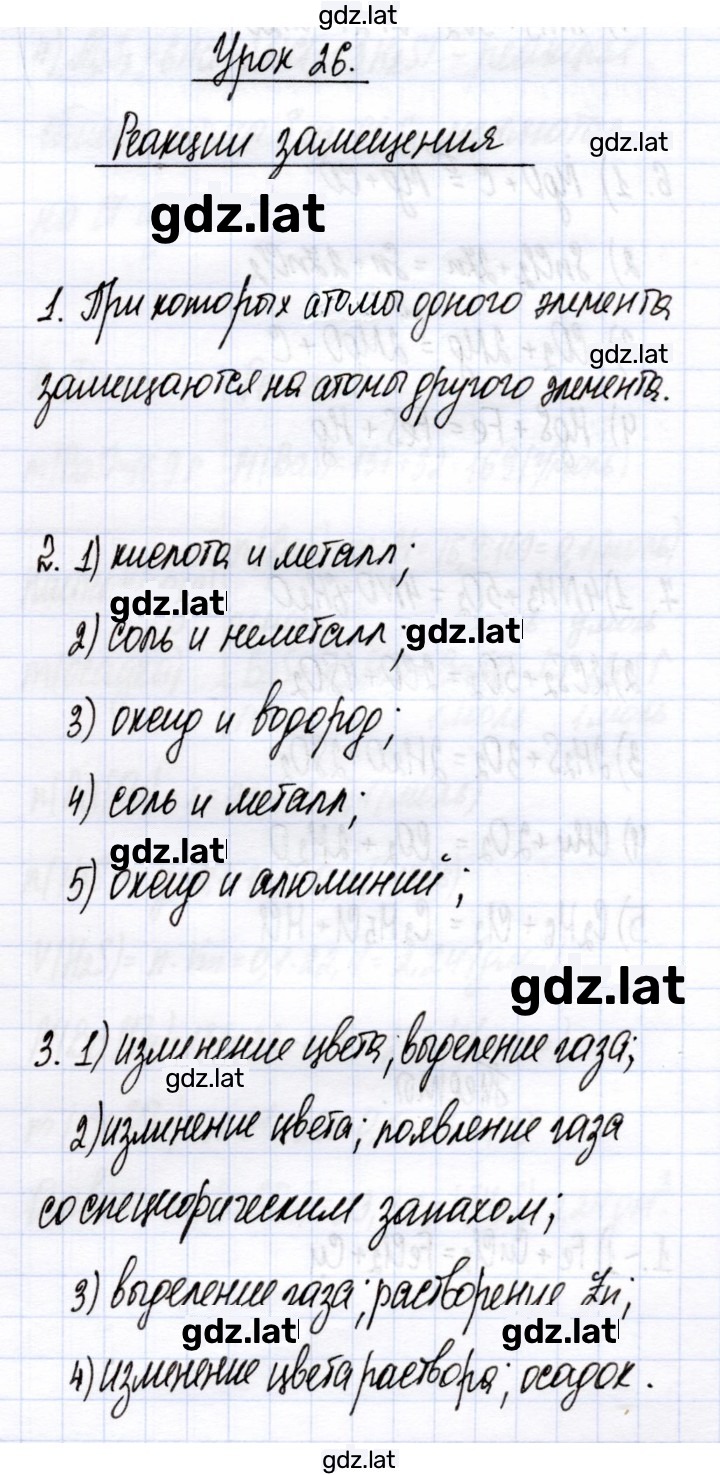 gdz.lat
Урок 26.
Реакции замещения
gdz.lat
gdz.lat
1. При которых атомы одного элемента
gdz.lat
замещаются на атомы другого элемента.
2. 1) кислота и металл;
gdz.lat
2) соль и неметалл;
gdz.lat
3) оксид и водород;
4) соль и металл;
gdz.lat
5) оксид и алюминий;
gdz.lat
3. 1) изменение цвета; выделение газа;
gdz.lat
2) изменение цвета; появление газа
со специфическим запахом;
3) выделение газа; растворение Zn;
gdz.lat gdz.lat
4) изменение цвета раствора; осадок.
gdz.lat